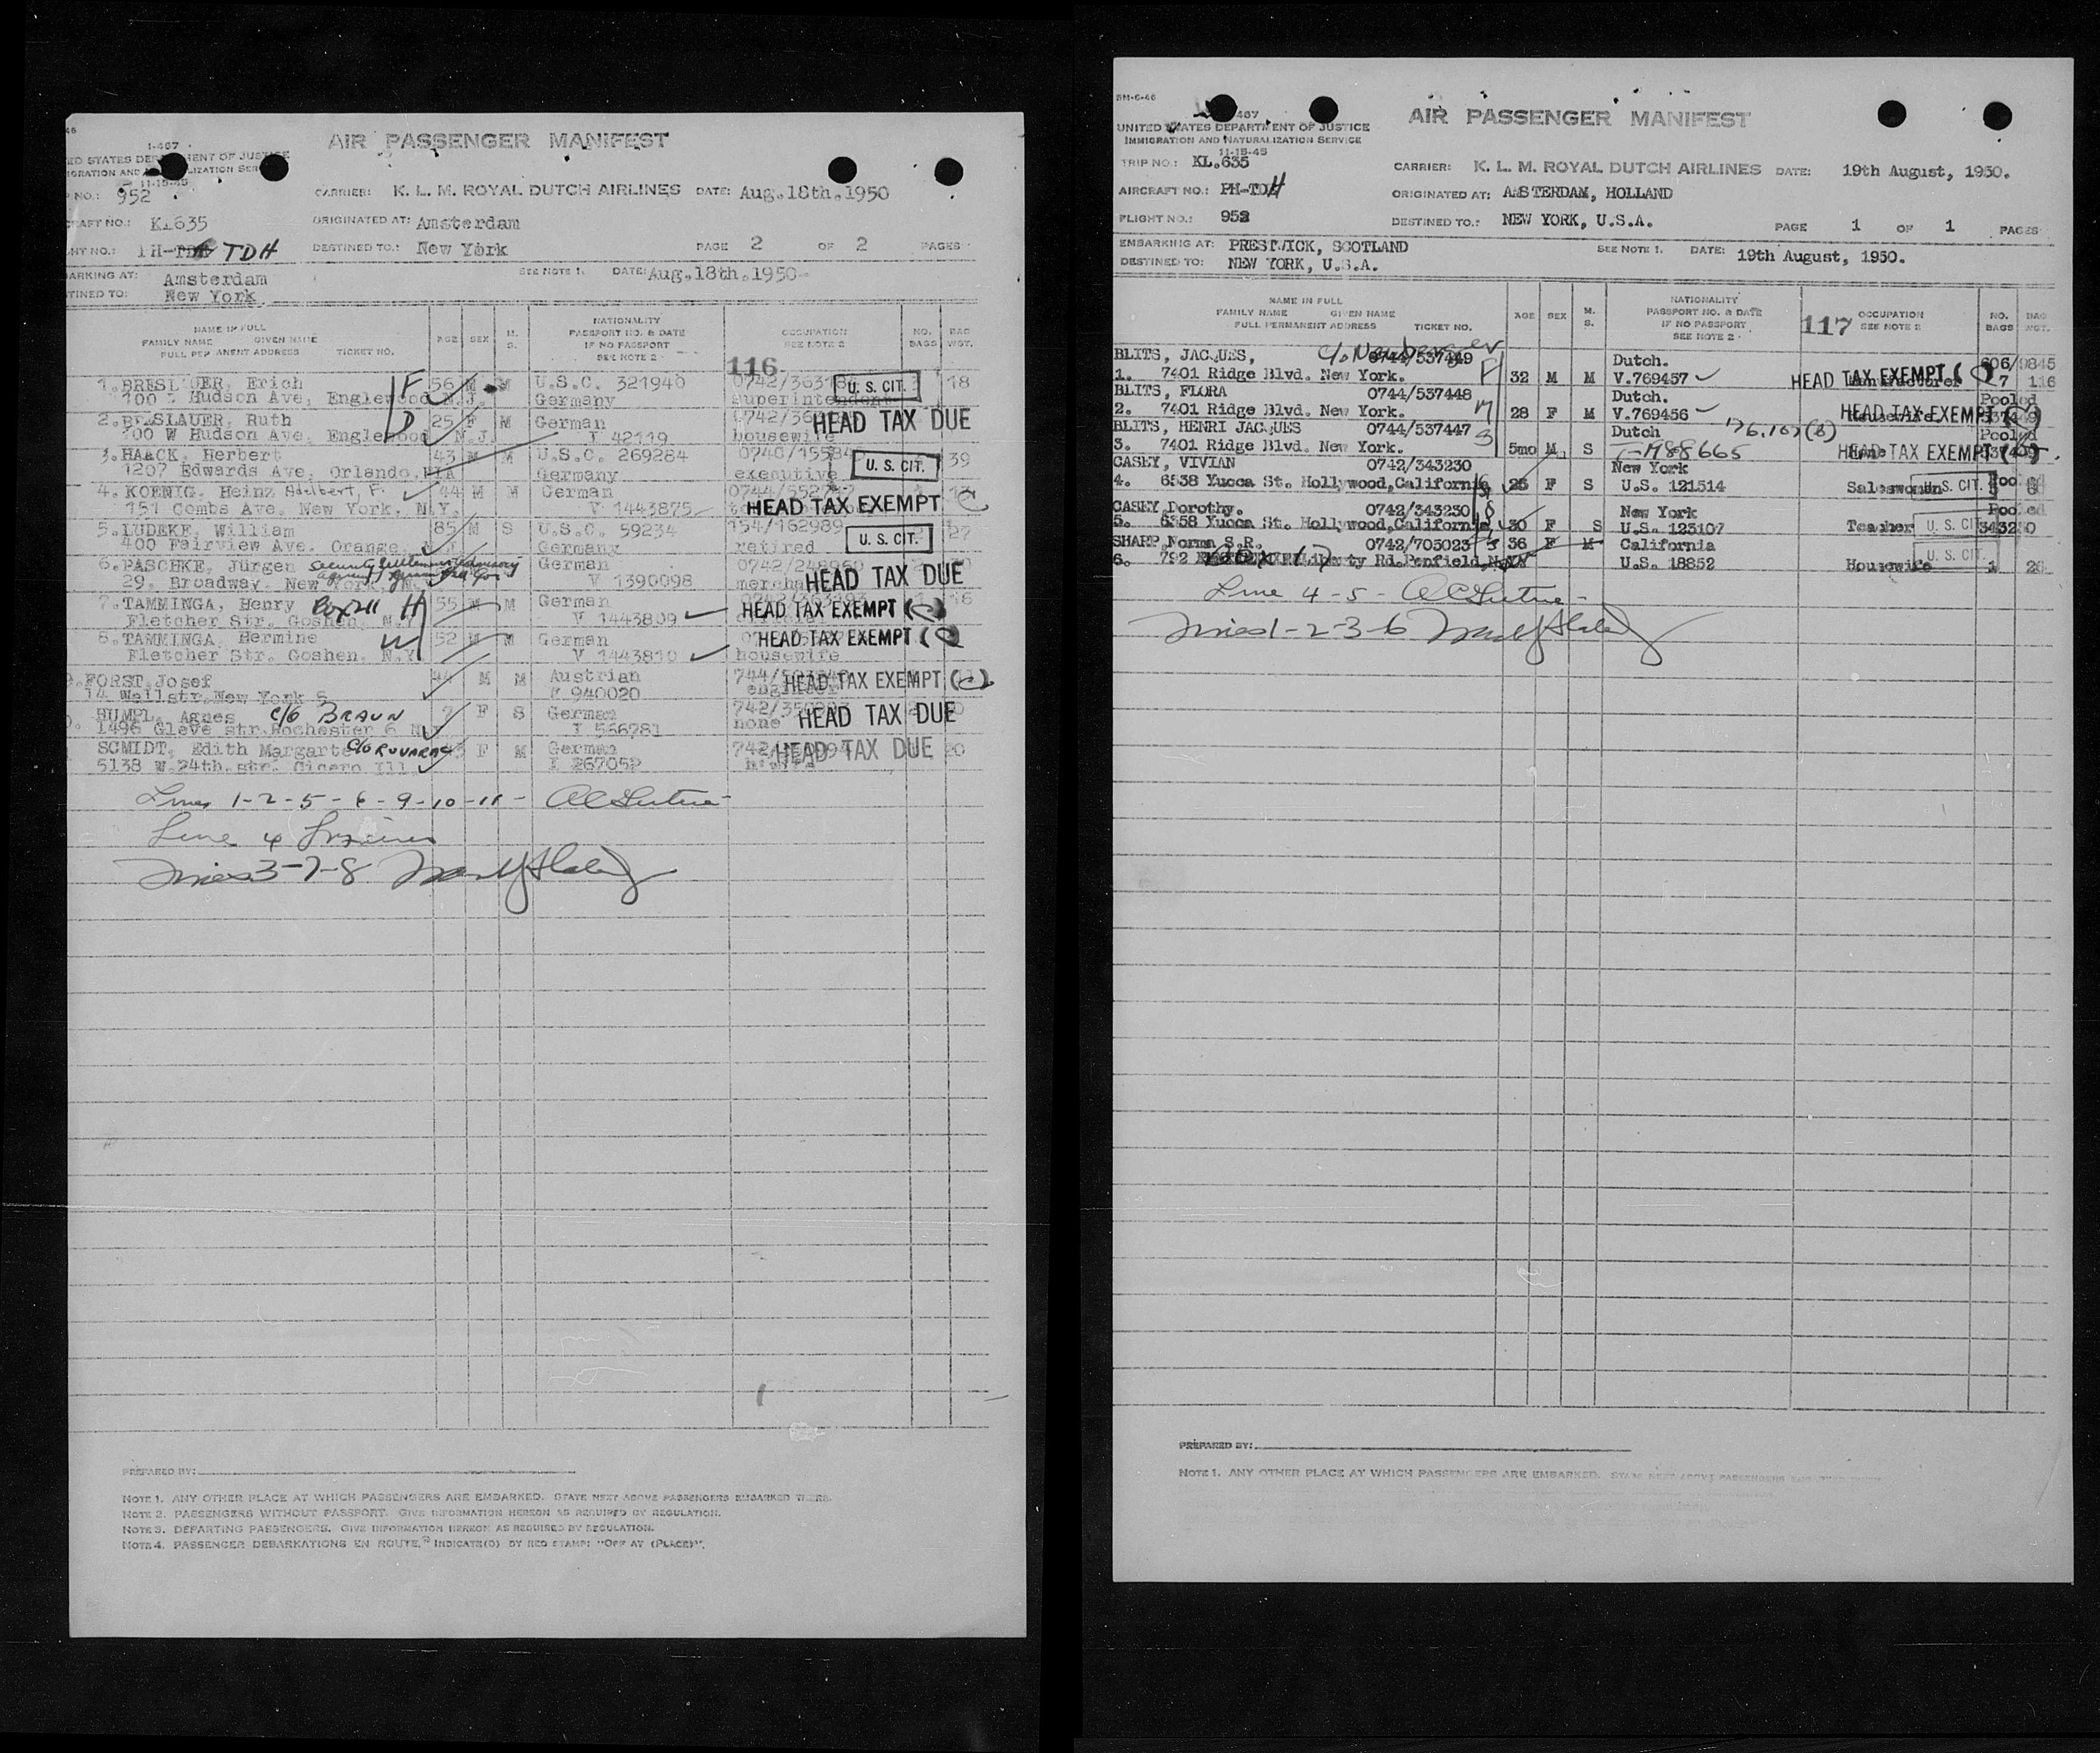 AIR PASSENGER MANIFEST
I-467
ED STATES DEPARTMENT OF JUSTICE
IGRATION AND NATURALIZATION SER
11-15-45
NO.: 952
CARRIER: K. L. M. ROYAL DUTCH AIRLINES DATE: Aug.18th.1950
RAFT NO.: KL635
ORIGINATED AT: Amsterdam
HT NO.: PH-TDH
DESTINED TO.: New York PAGE 2 OF 2 PAGES
ARKING AT: Amsterdam
SEE NOTE 1. DATE: Aug.18th.1950
TINED TO: New York
NAME IN FULL
FAMILY NAME GIVEN NAME
FULL PERMANENT ADDRESS TICKET NO.
AGE SEX M. S.
NATIONALITY
PASSPORT NO. & DATE
IF NO PASSPORT
SEE NOTE 2
OCCUPATION
SEE NOTE 2
NO. BAGS
BAG WGT.
116
1. BRESLAUER, Erich F 56 M M U.S.C. 321940 U. S. CIT. 18
100 W Hudson Ave, Englewood N.J. Germany Superintendent
2. BRESLAUER, Ruth D 25 F M German HEAD TAX DUE
100 W Hudson Ave. Englewood N.J. I 42119 housewife
3. HAACK, Herbert 43 M M U.S.C. 269284 U. S. CIT. 39
1207 Edwards Ave, Orlando, Germany executive
4. KOENIG, Heinz Adelbert, F. 44 M M German HEAD TAX EXEMPT
151 Combs Ave. New York. N.Y. V 1443875
5. LUDEKE, William 85 M S U.S.C. 59234 154/162989 U. S. CIT. 27
400 Fairview Ave. Orange, N.J. Germany retired
6. PASCHKE, Jürgen German 0742/248960 HEAD TAX DUE
29. Broadway. New York V 1390098
7. TAMMINGA, Henry Box 211 H 55 M M German HEAD TAX EXEMPT (C) 16
Fletcher Str. Goshen. N.Y. V 1443809
8. TAMMINGA, Hermine W 52 M German HEAD TAX EXEMPT (C)
Fletcher Str. Goshen. N.Y. V 1443810 housewife
FORST, Josef 44 M M Austrian HEAD TAX EXEMPT (C)
14 Wallstr. New York 5 940020 engineer
HUMPL, Agnes c/o BRAUN 7 F S German HEAD TAX DUE
1496 Gleve str. Rochester 6 N.Y. I 566981 none
SCMIDT, Edith Margarte c/o RUVARAC F M German HEAD TAX DUE 20
5138 W.24th.str. Cicero Ill. I 26705
Lines 1-2-5-6-9-10-11-
Line 4
Lines 3-7-8
PREPARED BY:
NOTE 1. ANY OTHER PLACE AT WHICH PASSENGERS ARE EMBARKED. STATE NEXT ABOVE PASSENGERS EMBARKED THERE.
NOTE 2. PASSENGERS WITHOUT PASSPORT. GIVE INFORMATION HEREON AS REQUIRED BY REGULATION.
NOTE 3. DEPARTING PASSENGERS. GIVE INFORMATION HEREON AS REQUIRED BY REGULATION.
NOTE 4. PASSENGER DEBARKATIONS EN ROUTE, INDICATE(D) BY RED STAMP: "OFF AT (PLACE)".
SM-6-46
467
AIR PASSENGER MANIFEST
UNITED STATES DEPARTMENT OF JUSTICE
IMMIGRATION AND NATURALIZATION SERVICE
11-15-45
TRIP NO.: KL.635
CARRIER: K. L. M. ROYAL DUTCH AIRLINES DATE: 19th August, 1950.
AIRCRAFT NO.: PH-TDH
ORIGINATED AT: AMSTERDAM, HOLLAND
FLIGHT NO.: 952
DESTINED TO.: NEW YORK, U.S.A. PAGE 1 OF 1 PAGES
EMBARKING AT: PRESTWICK, SCOTLAND
SEE NOTE 1. DATE: 19th August, 1950.
DESTINED TO: NEW YORK, U.S.A.
NAME IN FULL
FAMILY NAME GIVEN NAME
FULL PERMANENT ADDRESS TICKET NO.
AGE SEX M. S.
NATIONALITY
PASSPORT NO. & DATE
IF NO PASSPORT
SEE NOTE 2
117
OCCUPATION
SEE NOTE 2
NO. BAGS
BAG WGT.
BLITS, JACQUES, c/o Neuberger 0744/537449 Dutch.
1. 7401 Ridge Blvd. New York. F 32 M M V.769457 HEAD TAX EXEMPT 7 116
BLITS, FLORA 0744/537448 Dutch. Pooled
2. 7401 Ridge Blvd. New York. M 28 F M V.769456 HEAD TAX EXEMPT
BLITS, HENRI JACQUES 0744/537447 Dutch 176.107(b) Pooled
3. 7401 Ridge Blvd. New York. S 5mo M S 1988665 HEAD TAX EXEMPT
CASEY, VIVIAN 0742/343230 New York
4. 6538 Yucca St. Hollywood,California 25 F S U.S. 121514 Saleswoman U. S. CIT.
CASEY Dorothy. 0742/343230 New York Pooled
5. 6358 Yucca St. Hollywood,California 30 F S U.S. 123107 Teacher U. S. CIT. 343230
SHARP Norma S.R. 0742/705023 36 F M California U. S. CIT.
6. 792 Liberty Rd.Penfield, U.S. 18852 Housewife 1 26
Line 4-5-
Lines 1-2-3-6
PREPARED BY:
NOTE 1. ANY OTHER PLACE AT WHICH PASSENGERS ARE EMBARKED. STATE NEXT ABOVE PASSENGERS EMBARKED THERE.